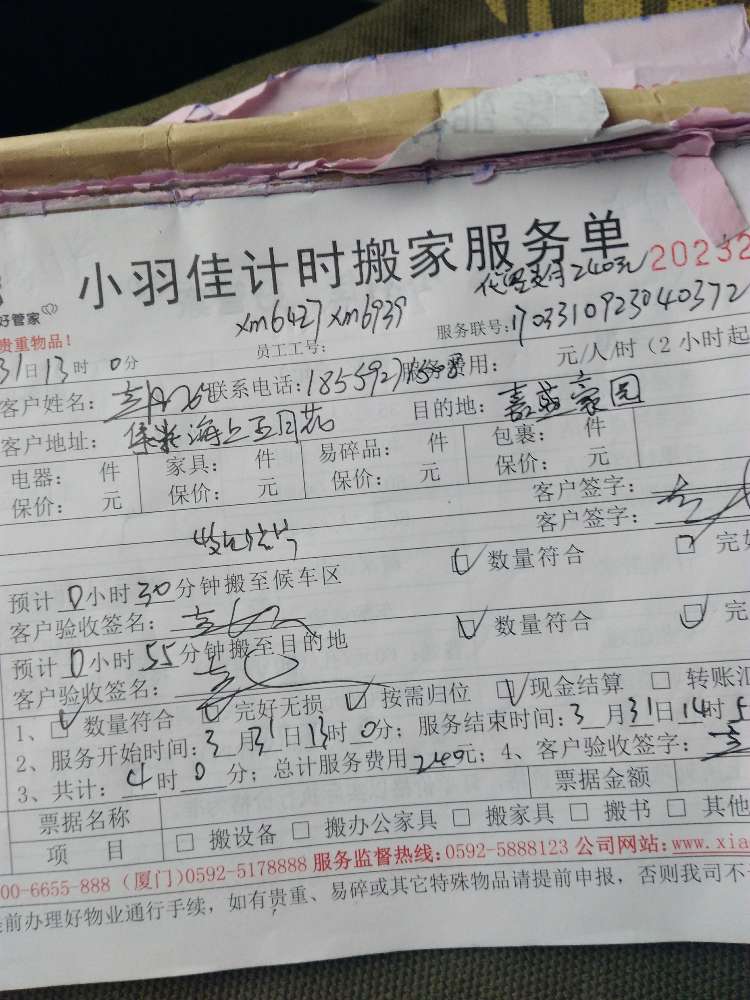 小羽佳计时搬家服务单
好管家
代收支付240元 20232
贵重物品！
xm6427 xm6939
员工工号： 服务联号：1703310923040372
31日13时0分
客户姓名： 联系电话： 服务费用： 元/人/时（2小时起
客户地址：海上五月花 目的地：嘉盛豪园
电器： 件 家具： 件 易碎品： 件 包裹： 件
保价： 元 保价： 元 保价： 元 保价： 元
客户签字：
客户签字：
预计0小时30分钟搬至候车区 数量符合 完好
客户验收签名：
预计0小时55分钟搬至目的地 数量符合 完
客户验收签名：
1、数量符合 完好无损 按需归位 现金结算 转账汇
2、服务开始时间：3月31日13时0分；服务结束时间：3月31日14时5
3、共计：4时0分；总计服务费用240元；4、客户验收签字：
票据名称 票据金额
项目 搬设备 搬办公家具 搬家具 搬书 其他
00-6655-888（厦门)0592-5178888 服务监督热线：0592-5888123 公司网站：www.xia
前办理好物业通行手续，如有贵重、易碎或其它特殊物品请提前申报，否则我司不